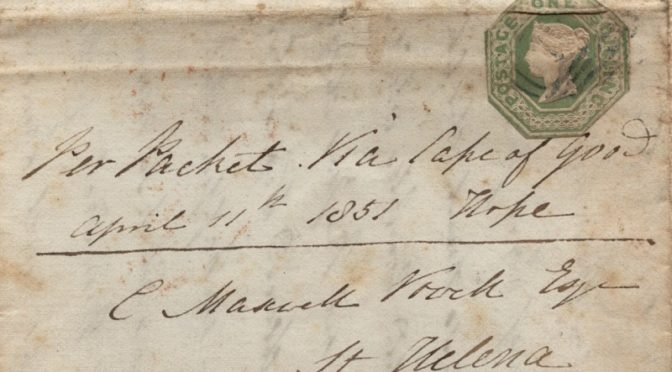 POSTAGE ONE SHILLING
Per Packet Via Cape of Good
April 11th 1851 Hope
C Maxwell Esqr
St Helena